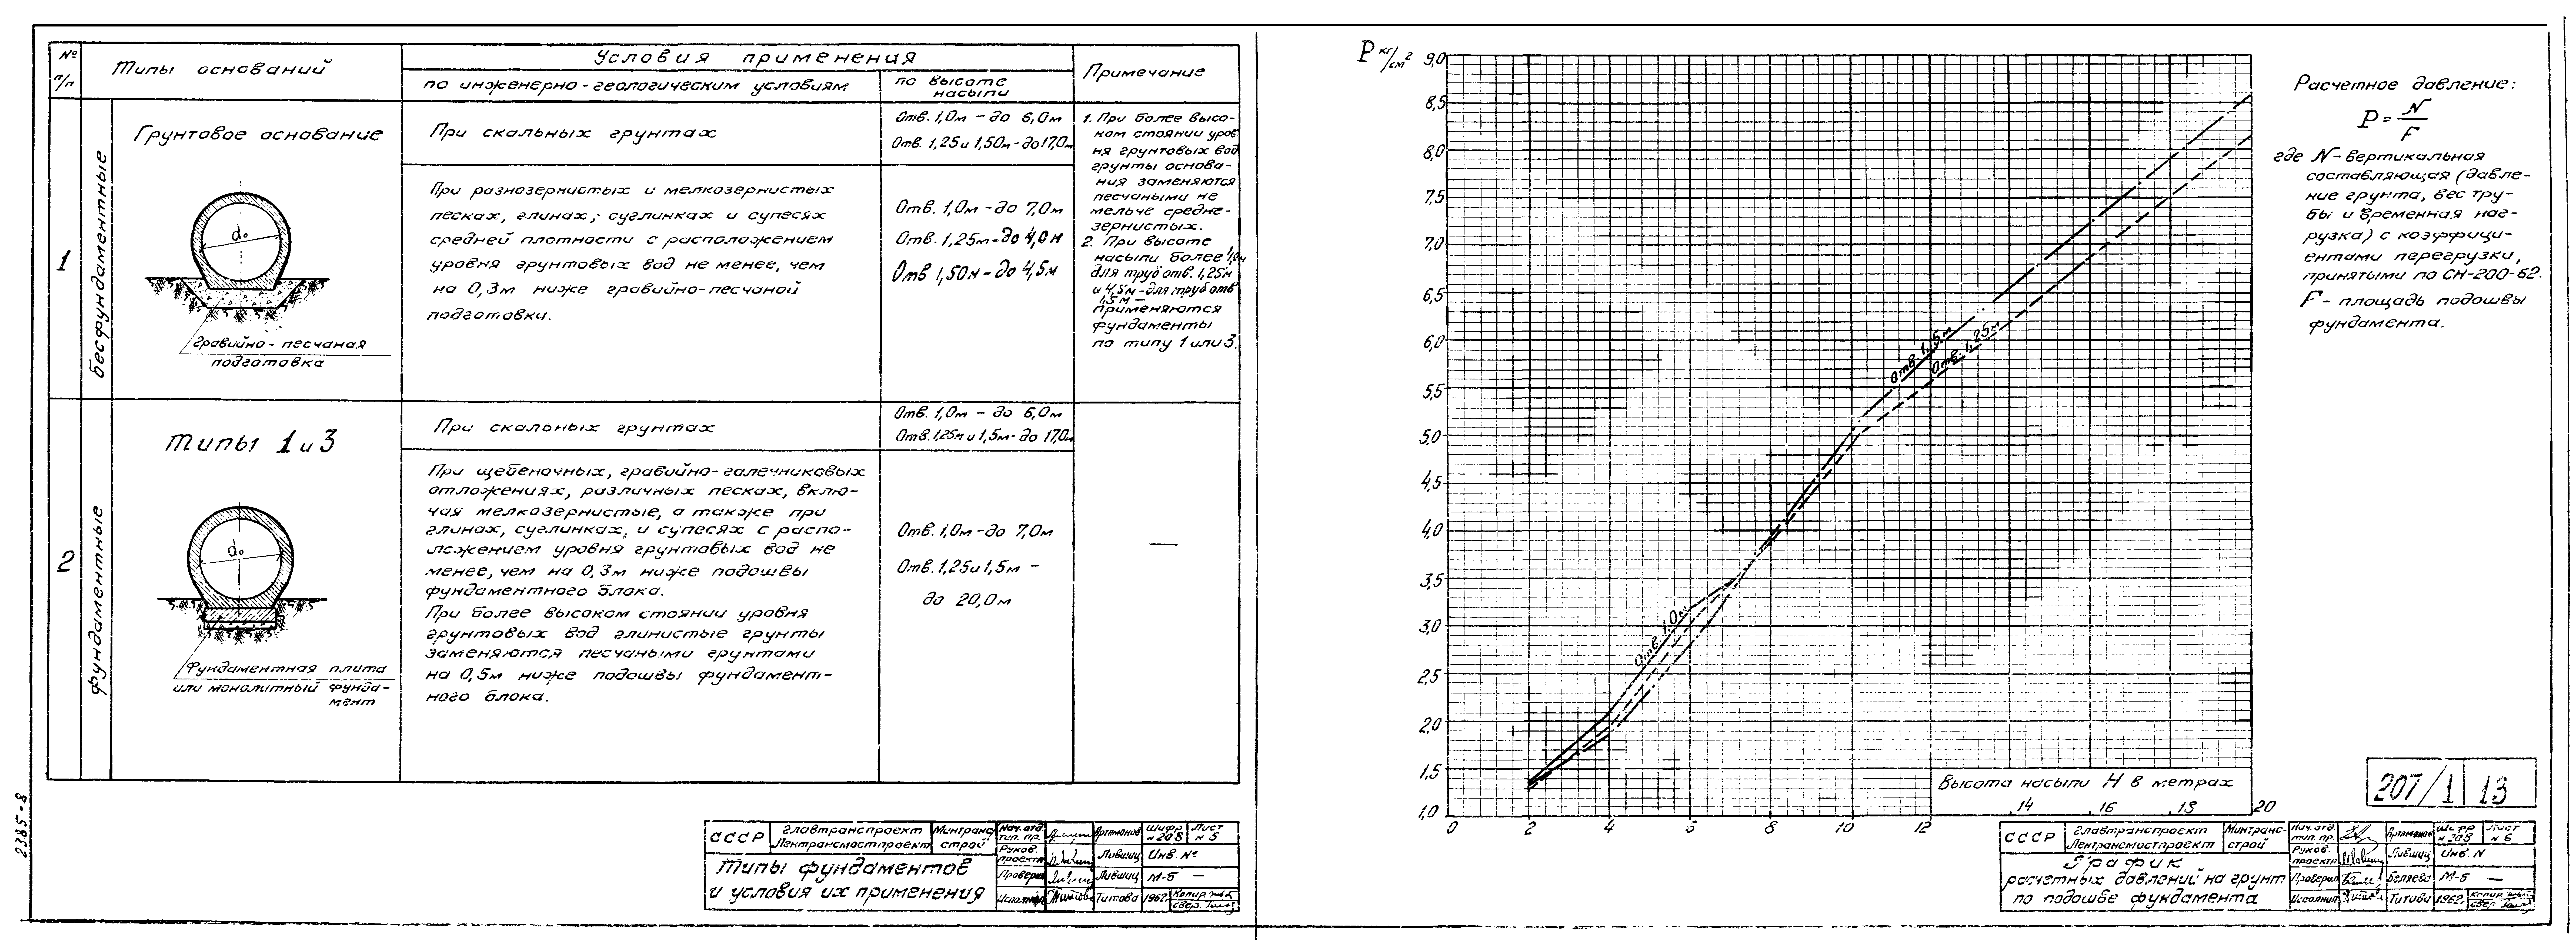 № п/п
Типы оснований
Условия применения
по инженерно-геологическим условиям
по высоте
насыпи
Примечание
1
бесфундаментные
Грунтовое основание
d₀
Гравийно-песчаная
подготовка
При скальных грунтах
Отв. 1,0м - до 6,0м
Отв. 1,25 и 1,50м - до 17,0м
При разнозернистых и мелкозернистых
песках, глинах, суглинках и супесях
средней плотности с расположением
уровня грунтовых вод не менее, чем
на 0,3м ниже гравийно-песчаной
подготовки.
Отв. 1,0м - до 7,0м
Отв. 1,25м - до 4,0м
Отв 1,50м - до 4,5м
1. При более высо-
ком стоянии уров
ня грунтовых вод
грунты основа-
ния заменяются
песчаными не
мельче средне-
зернистых.
2. При высоте
насыпи более 4,0м
для труб отв. 1,25м
и 4,5м - для труб отв
1,5м -
применяются
фундаменты
по типу 1 или 3.
2
фундаментные
Типы 1 и 3
d₀
Фундаментная плита
или монолитный фунда-
мент
При скальных грунтах
Отв. 1,0м - до 6,0м
Отв. 1,25м и 1,5м - до 17,0м
При щебеночных, гравийно-галечниковых
отложениях, различных песках, вклю-
чая мелкозернистые, а также при
глинах, суглинках, и супесях с распо-
ложением уровня грунтовых вод не
менее, чем на 0,3м ниже подошвы
фундаментного блока.
При более высоком стоянии уровня
грунтовых вод глинистые грунты
заменяются песчаными грунтами
на 0,5м ниже подошвы фундамент-
ного блока.
Отв. 1,0м - до 7,0м
Отв. 1,25 и 1,5м -
до 20,0м
—
2385-8
СССР
Главтранспроект
Лентрансмостпроект
Минтранс
строй
Нач. отд.
тип. пр.
Артамонов
Шифр
№ 208
Лист
№ 5
Типы фундаментов
и условия их применения
Руков.
проекта
Лившиц
Инв. №
Проверил
Лившиц
М-б —
Исполнил
Титова
1962г.
P кг/см²
9,0
8,5
8,0
7,5
7,0
6,5
6,0
5,5
5,0
4,5
4,0
3,5
3,0
2,5
2,0
1,5
1,0
Отв. 1,5м
Отв. 1,25м
Отв. 1,0м
Высота насыпи Н в метрах
0 2 4 6 8 10 12 14 16 18 20
Расчетное давление:
P = N/F
где N - вертикальная
составляющая (давле-
ние грунта, вес тру-
бы и временная наг-
рузка) с коэффици-
ентами перегрузки,
принятыми по СН-200-62.
F - площадь подошвы
фундамента.
207/1 13
СССР
Главтранспроект
Лентрансмостпроект
Минтранс-
строй
Нач. отд.
тип. пр.
Артамонов
Шифр
№ 208
Лист
№ 6
График
расчетных давлений на грунт
по подошве фундамента
Руков.
проекта
Лившиц
Инв. N
Проверил
Беляева
М-б —
Исполнил
Титова
1962г.